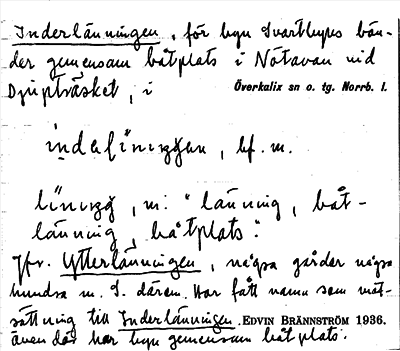 Inderlänningen, för byn Svartbyns bön-
der gemensam båtplats i Nötavan vid
Djupträsket, i Överkalix sn o. tg. Norrb. l.
bf. m.
m. "länning, båt-
länning, båtplats".
Jfr. Ytterlänningen, några gårder några
hundra m. S. därom. Har fått namn som mot-
sättning till Inderlänningen. EDVIN BRÄNNSTRÖM 1936.
även där har byn gemensam båtplats.